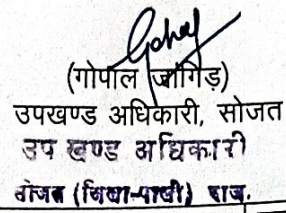 (गोपाल जांगिड़)
उपखण्ड अधिकारी, सोजत
उप खण्ड अधिकारी
सोजत (जिला-पाली) राज.